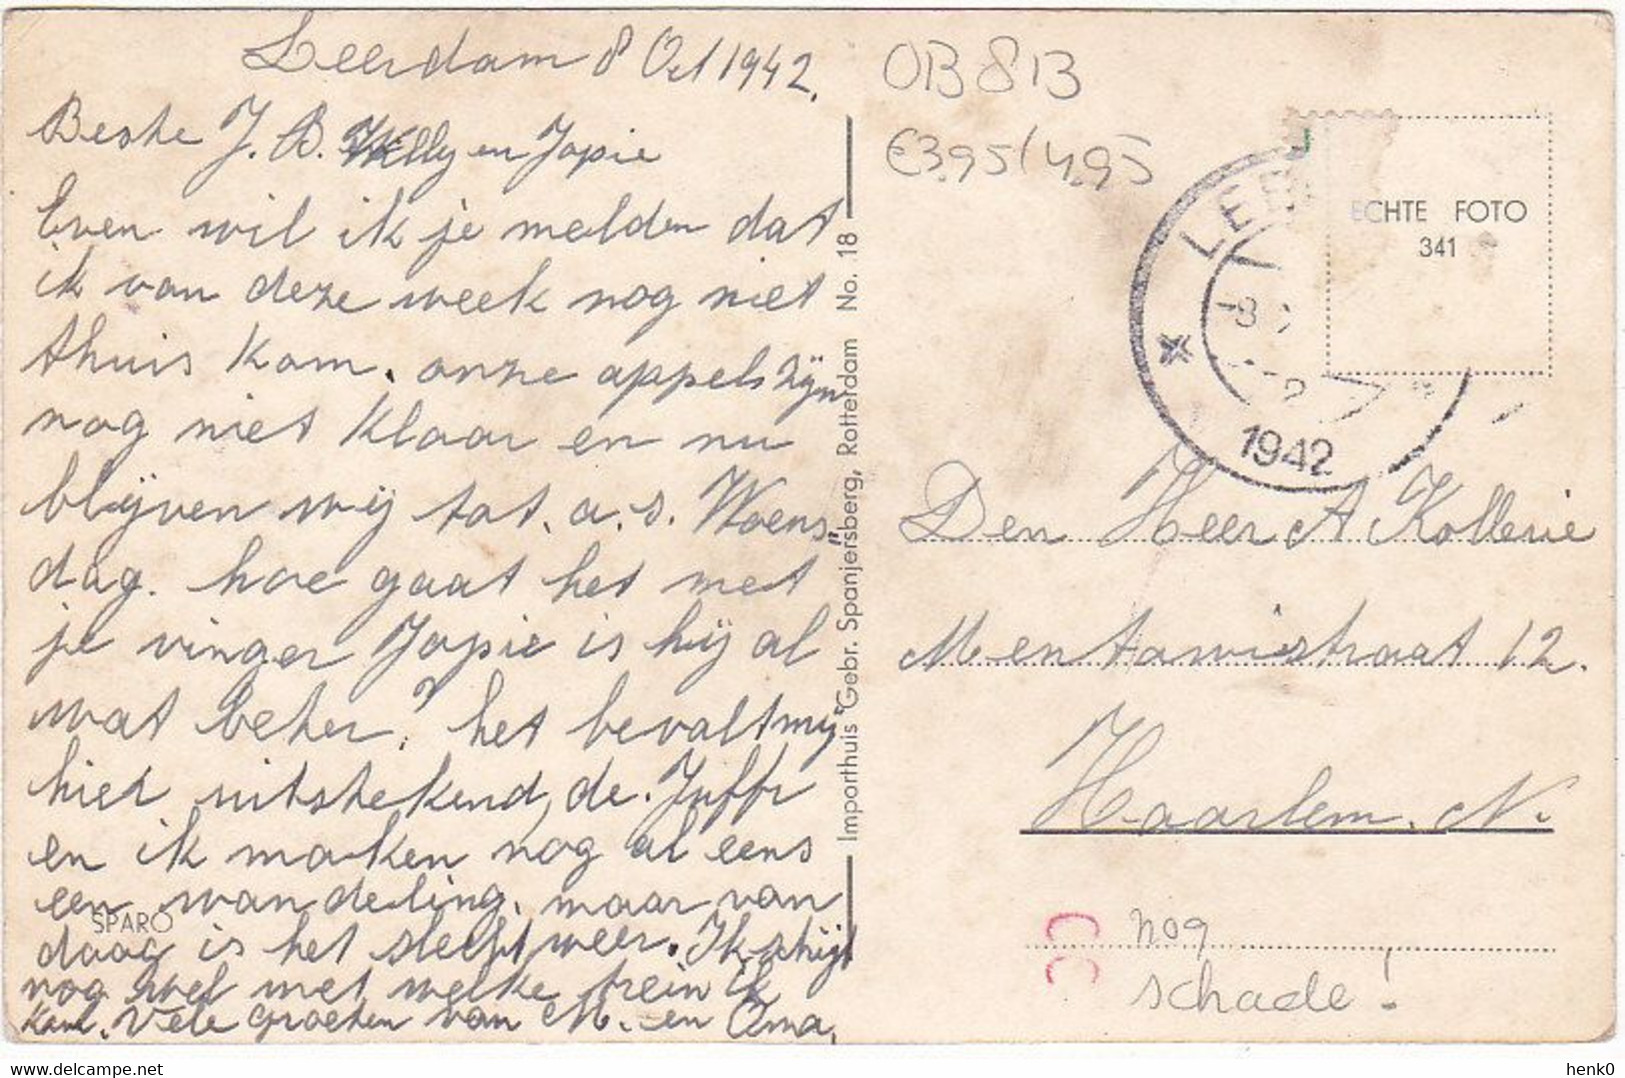 Leerdam 8 Oct 1942.
Beste J. B. Welly en Jopie
Even wil ik je melden dat
ik van deze week nog niet
thuis kom. onze appels zijn
nog niet klaar en nu
blijven wij tot. a.s. Woens"
dag. hoe gaat het met
je vinger Jopie is hij al
wat beter? het bevalt mij
hier uitstekend, de. Juffr
en ik maken nog al eens
een wandeling, maar van
daag is het slecht weer. Ik schijf
nog wel met welke trein ik
kom. Vele groeten van M. en Oma,
SPARO
Importhuis Gebr. Spanjersberg, Rotterdam No. 18
OB 8 B
€3.95/4.95
ECHTE FOTO
341
-8
1942
Den Heer A Kollerie
Mentawistraat 12.
Haarlem. N.
CC
nog
schade!
henk0